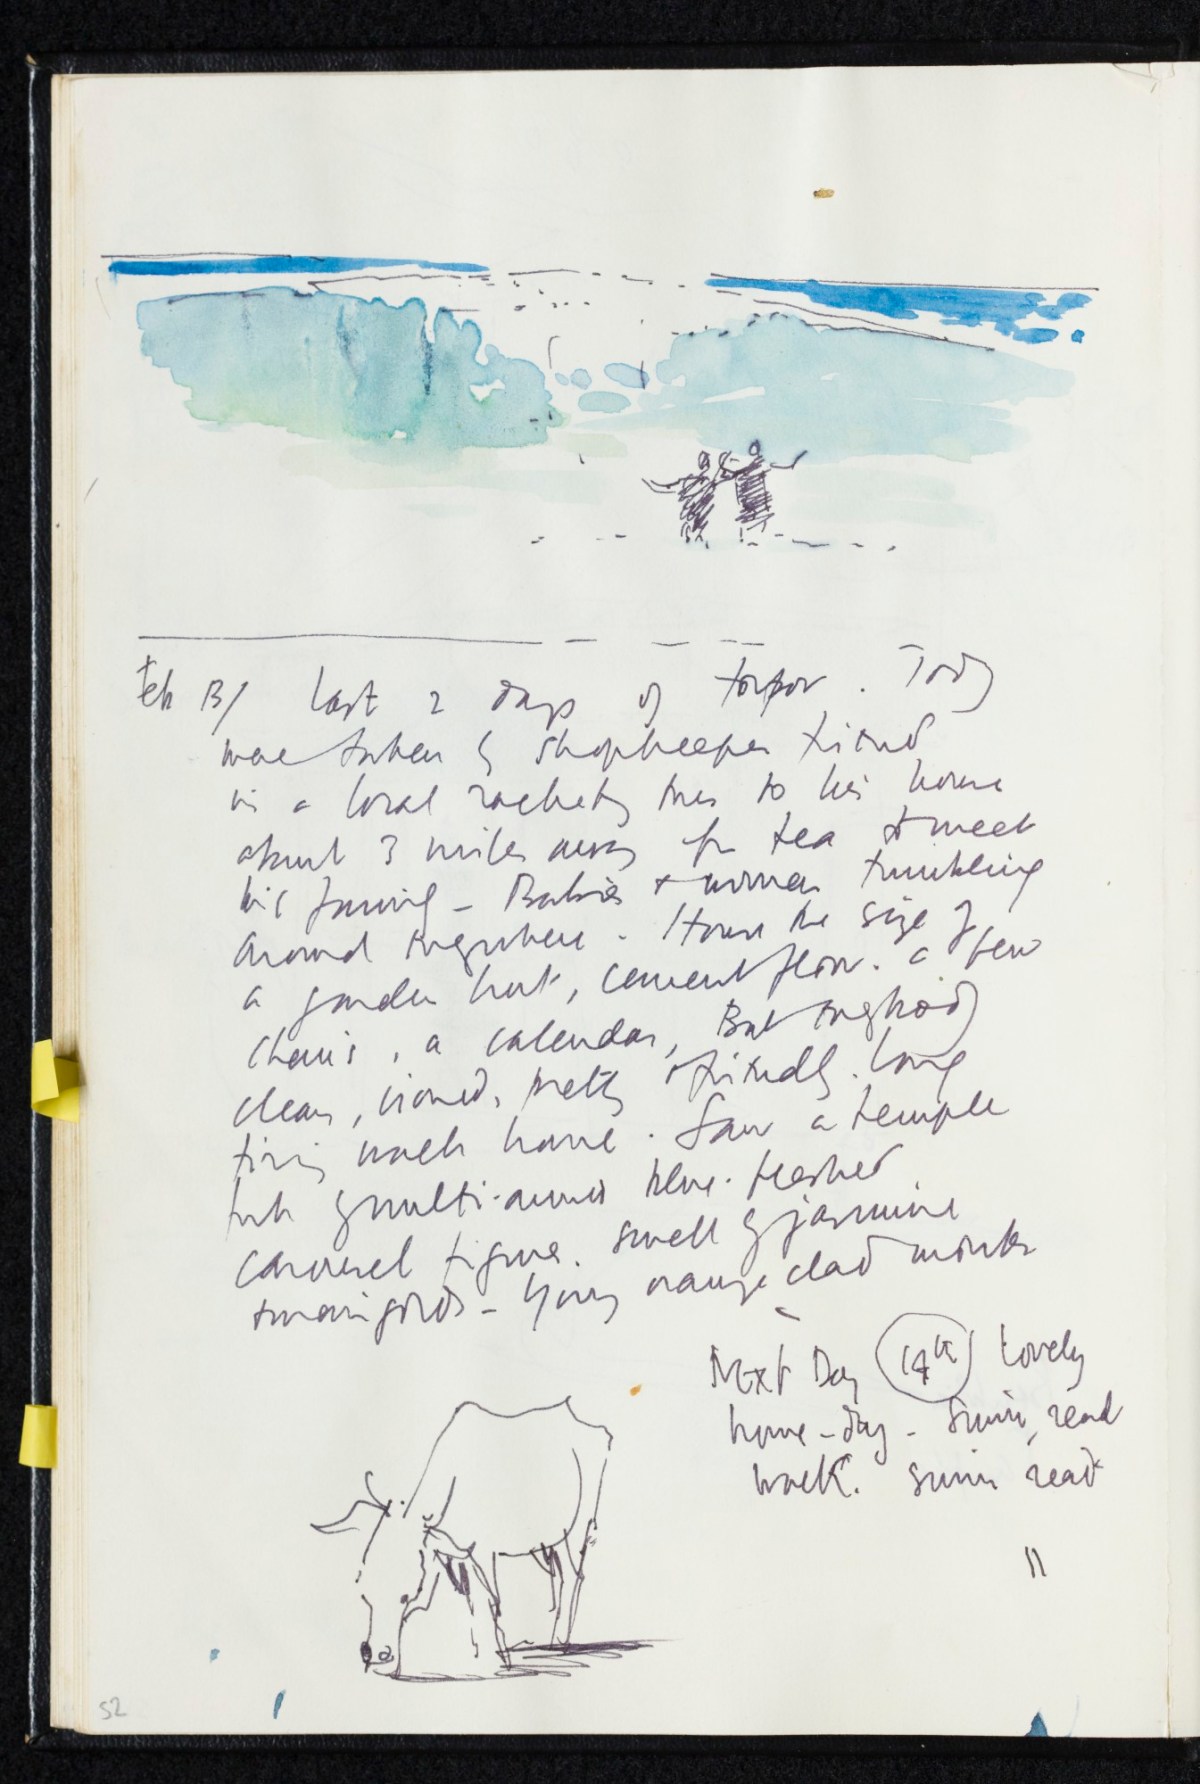 Feb 13/ Last 2 days of torpor. Today
were taken by shopkeeper friend
in a local rackety bus to his home
about 3 miles away for tea & meet
his family - Babies & women twinkling
around everywhere. House the size of
a garden hut, cement floor. a few
chairs, a calendar, But everybody
clean, ironed, pretty & friendly. Long
tiring walk home. Saw a temple
hut multi-armed blue-fleshed
carousel figure. Smell of jasmine
& marigolds - Young orange clad monks
Next Day 14th Lovely
home-day - Swim, read
walk. Swim read
"
52